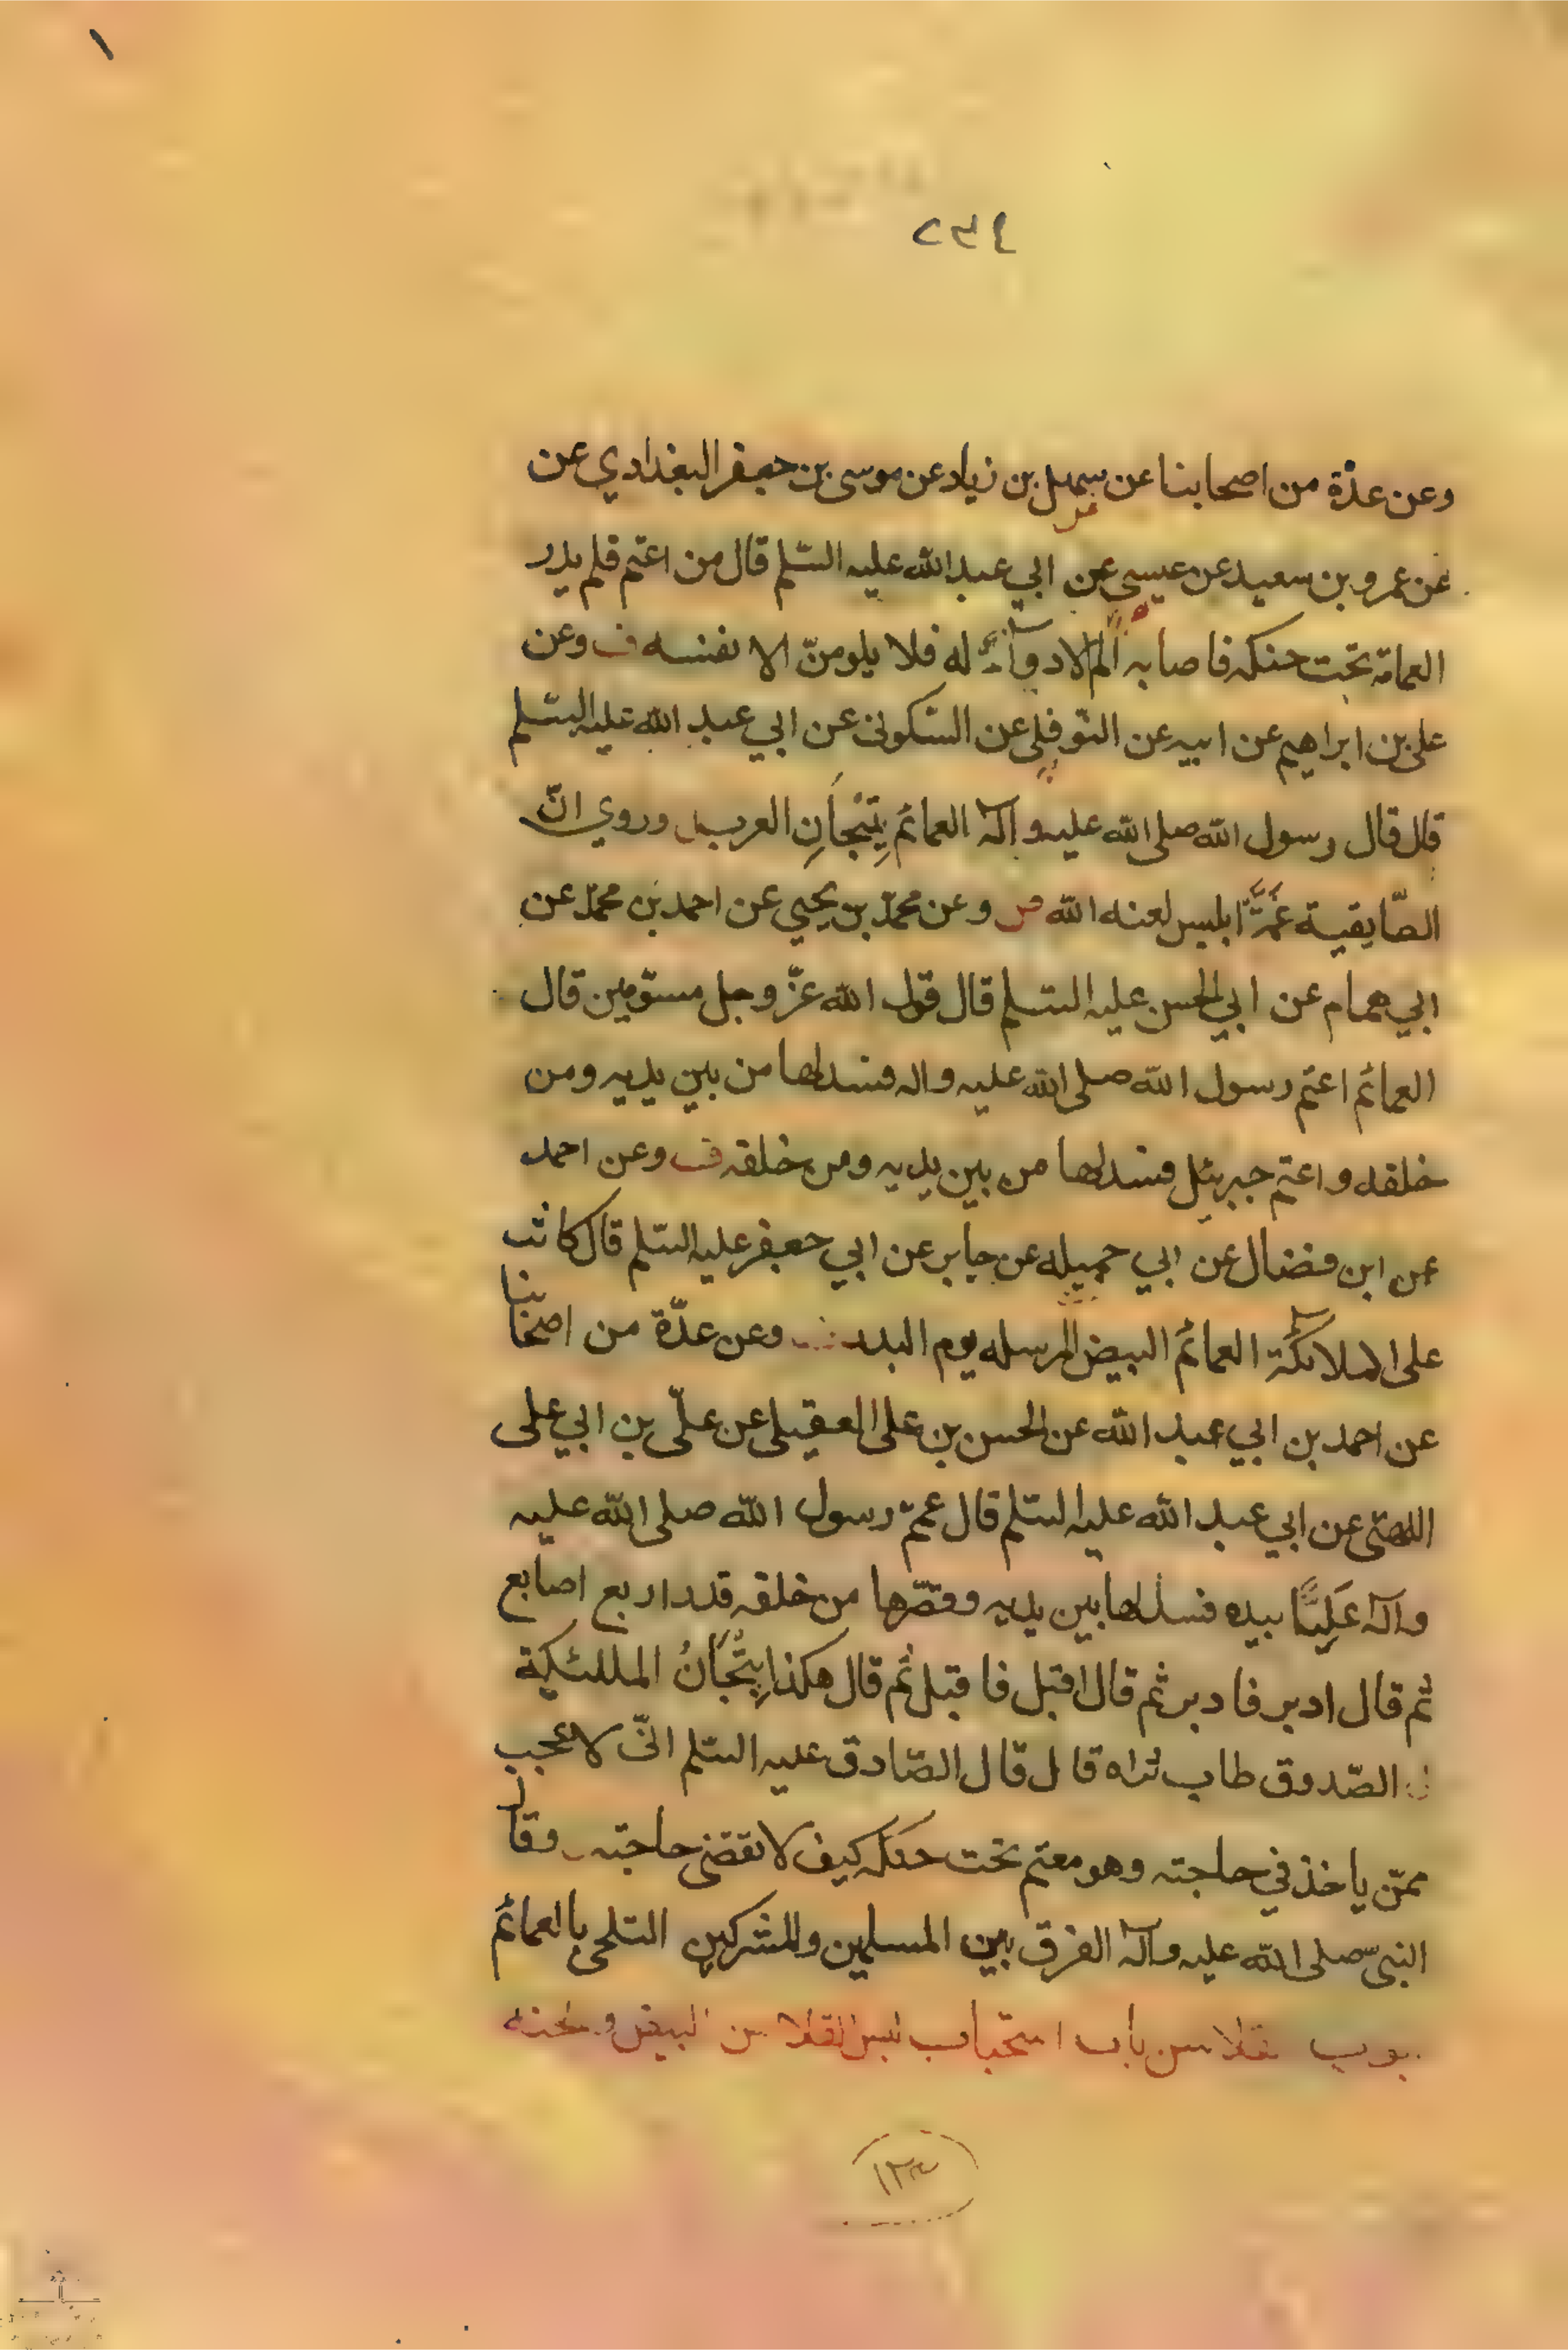 ١
٢٣٤
وعن عدّة من اصحابنا عن سهل بن زياد عن موسى بن جعفر البغدادي عن
عن عمرو بن سعيد عن عيسى عن ابي عبد الله عليه السّلم قال من اعتم فلم يدر
العمامة تحت حنكه فاصابه الم لا دوآء له فلا يلومنّ الا نفسه ف وعن
على بن ابراهيم عن ابيه عن النّوفلى عن السّكونى عن ابي عبد الله عليه السّلم
قال قال رسول الله صلى الله عليه وآله العمائم تِيْجَانِ العرب وروي انّ
الطّابقية عمّة ابليس لعنه الله وعن محمّد بن يحيي عن احمد بن محمّد عن
ابي همام عن ابي الحسن عليه السّلم قال قول الله عزّ وجل مسوّمين قال
العمائم اعتم رسول الله صلى الله عليه واله فسدلها من بين يديه ومن
خلفه واعتم جبرئل فسدلها من بين يديه ومن خلفه ف وعن احمد
عن ابن فضال عن ابي جميله عن جابر عن ابي جعفر عليه السّلم قال كانت
على الملائكة العمائم البيض المرسله يوم البدر وعن عدّة من اصحابنا
عن احمد بن ابي عبد الله عن الحسن بن على العقيلى عن علىّ بن ابي على
اللهبى عن ابي عبد الله عليه السّلم قال عمّم رسول الله صلى الله عليه
وآله عَلِيًّا بيده فسدلها بين يديه وقصّرها من خلفه قدر اربع اصابع
ثم قال ادبر فادبر ثم قال اقبل فاقبل ثم قال هكذا تِيْجَانُ الملئكة
الصّدوق طاب ثراه قال قال الصّادق عليه السّلم انّى لاعجب
ممّن ياخذ في حاجته وهو معتم تحت حنكه كيف لا تقضى حاجته وقال
النبىّ صلى الله عليه وآله الفرق بين المسلمين والمشركين التلحى بالعمائم
باب استحباب لبس القلانس البيض
١٢٣